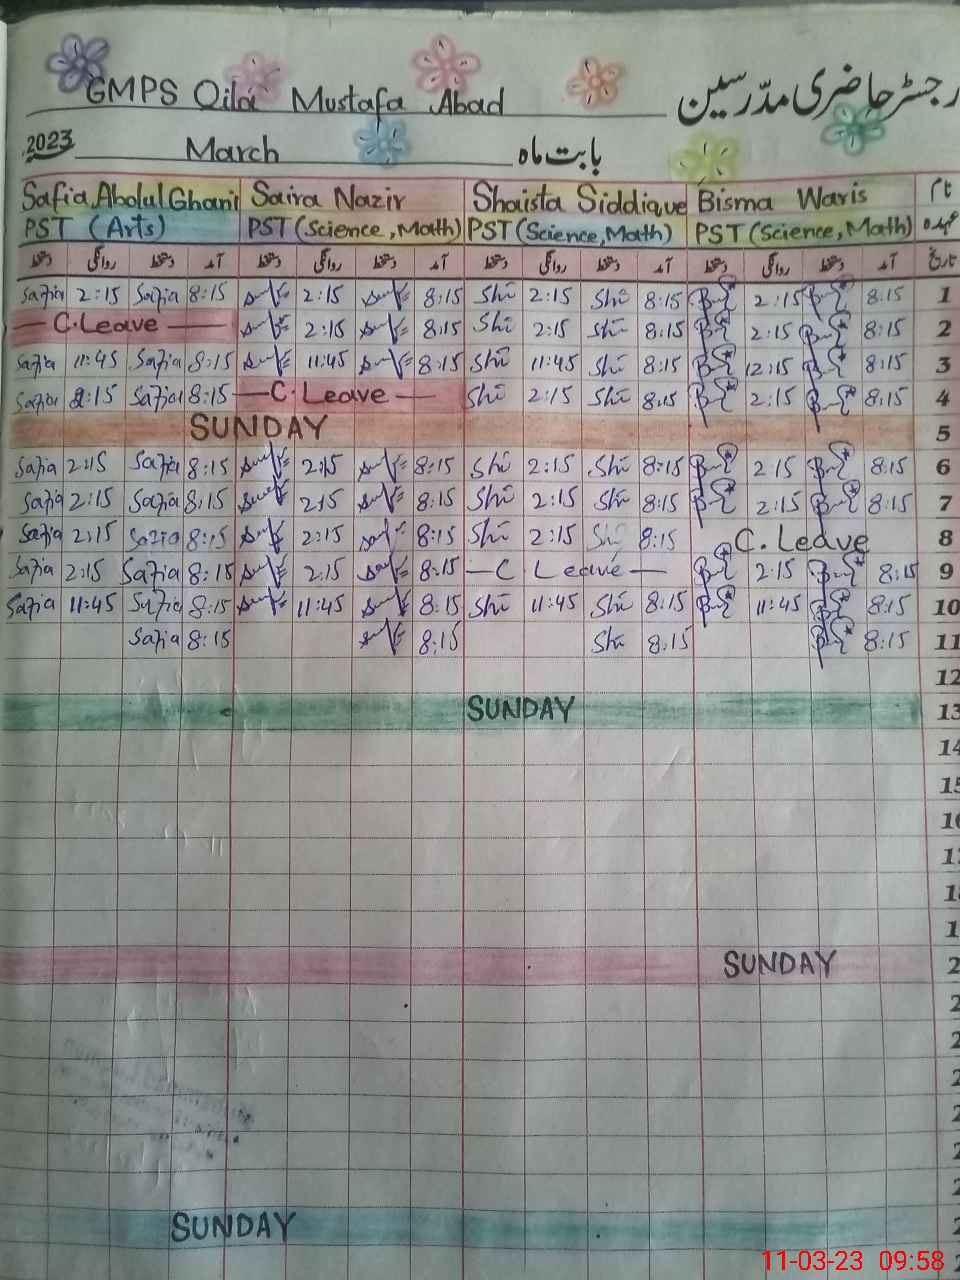 GMPS Qila Mustafa Abad رجسٹر حاضری مدرسین
2023 March بابت ماہ
Safia Abdul Ghani Saira Nazir Shaista Siddique Bisma Waris نام
PST (Arts) PST (Science, Math) PST (Science, Math) PST (Science, Math) عہدہ
دستخط روانگی دستخط آمد دستخط روانگی دستخط آمد دستخط روانگی دستخط آمد دستخط روانگی دستخط آمد تاریخ
Safia 2:15 Safia 8:15 2:15 8:15 Shi 2:15 Shi 8:15 2:15 8:15 1
C.Leave 2:15 8:15 Shi 2:15 Shi 8:15 2:15 8:15 2
Safia 11:45 Safia 8:15 11:45 8:15 Shi 11:45 Shi 8:15 12:15 8:15 3
Safia 2:15 Safia 8:15 C.Leave Shi 2:15 Shi 8:15 2:15 8:15 4
SUNDAY 5
Safia 2:15 Safia 8:15 2:15 8:15 Shi 2:15 Shi 8:15 2:15 8:15 6
Safia 2:15 Safia 8:15 2:15 8:15 Shi 2:15 Shi 8:15 2:15 8:15 7
Safia 2:15 Safia 8:15 2:15 8:15 Shi 2:15 Shi 8:15 C.Leave 8
Safia 2:15 Safia 8:15 2:15 8:15 C Leave 2:15 8:15 9
Safia 11:45 Safia 8:15 11:45 8:15 Shi 11:45 Shi 8:15 11:45 8:15 10
Safia 8:15 8:15 Shi 8:15 8:15 11
12
SUNDAY 13
14
15
SUNDAY
SUNDAY
11-03-23 09:58